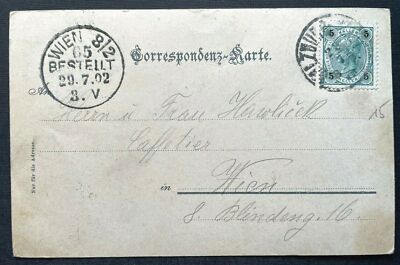 WIEN 8/2
65
BESTELLT
29.7.02
3.V
Correspondenz-Karte.
5 5
5 5
An
Herrn u Frau
Caffetier
in Wien
8. Blindeng. 16.
Nur für die Adresse.